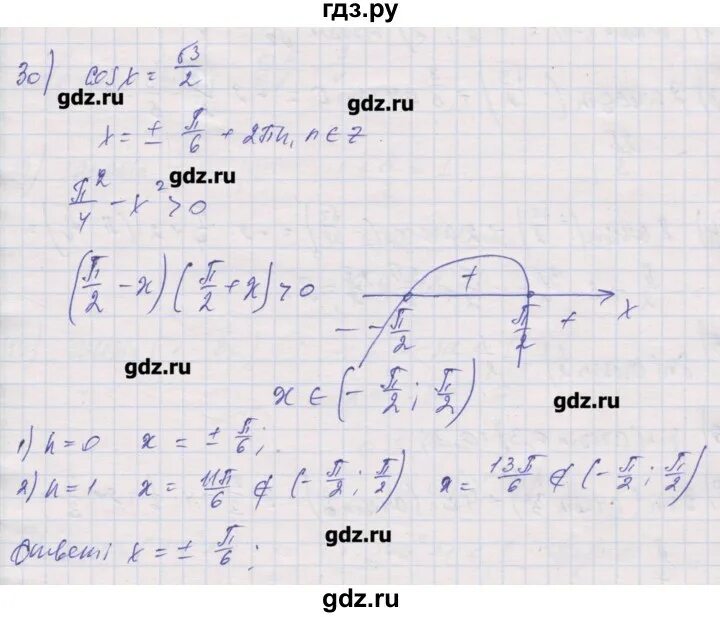 гдз.ру
30) cos x = √3/2
gdz.ru
gdz.ru
x = ± π/6 + 2πn, n ∈ Z.
gdz.ru
π²/4 - x² > 0
(π/2 - x)(π/2 + x) > 0
+
- -π/2 π/2 + x
gdz.ru
x ∈ (-π/2; π/2)
gdz.ru
1) n = 0 x = ± π/6;
2) n = 1 x = 11π/6 ∉ (-π/2; π/2) x = 13π/6 ∉ (-π/2; π/2)
gdz.ru
Ответ: x = ± π/6;
gdz.ru